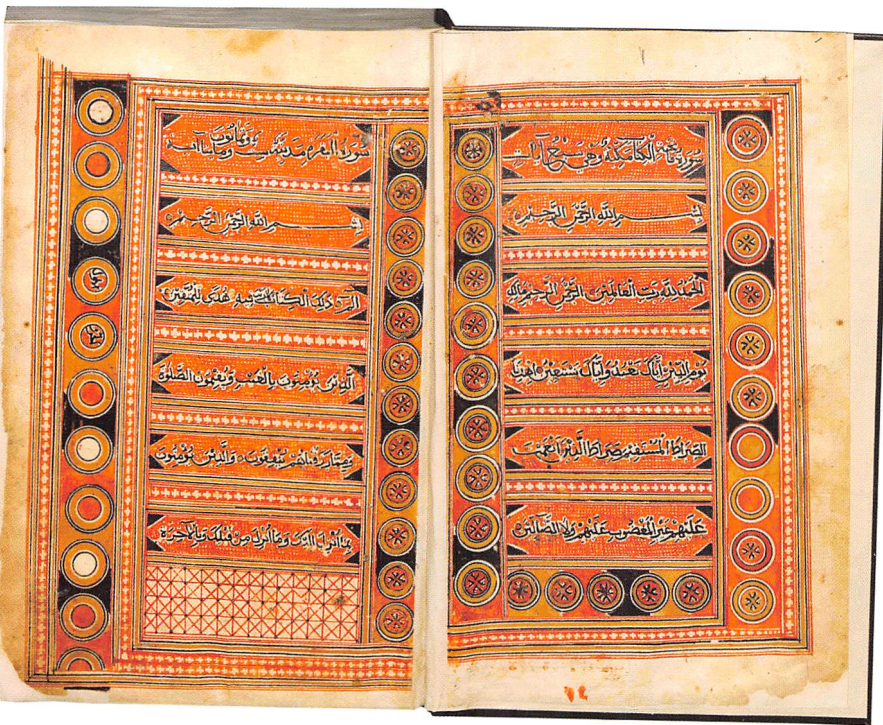 سورة فاتحة الكتاب مكية وهي سبع آيات
بسم الله الرحمن الرحيم
الحمد لله رب العالمين الرحمن الرحيم ملك
يوم الدين اياك نعبد واياك نستعين اهدنا
الصراط المستقيم صراط الذين انعمت
عليهم غير المغضوب عليهم ولا الضالين
سورة البقرة مدنية ست وثمانون ومايتا آية
بسم الله الرحمن الرحيم
الم ذلك الكتاب لا ريب فيه هدى للمتقين
الذين يؤمنون بالغيب ويقيمون الصلوة
ومما رزقناهم ينفقون والذين يؤمنون
بما انزل اليك وما انزل من قبلك وبالاخرة